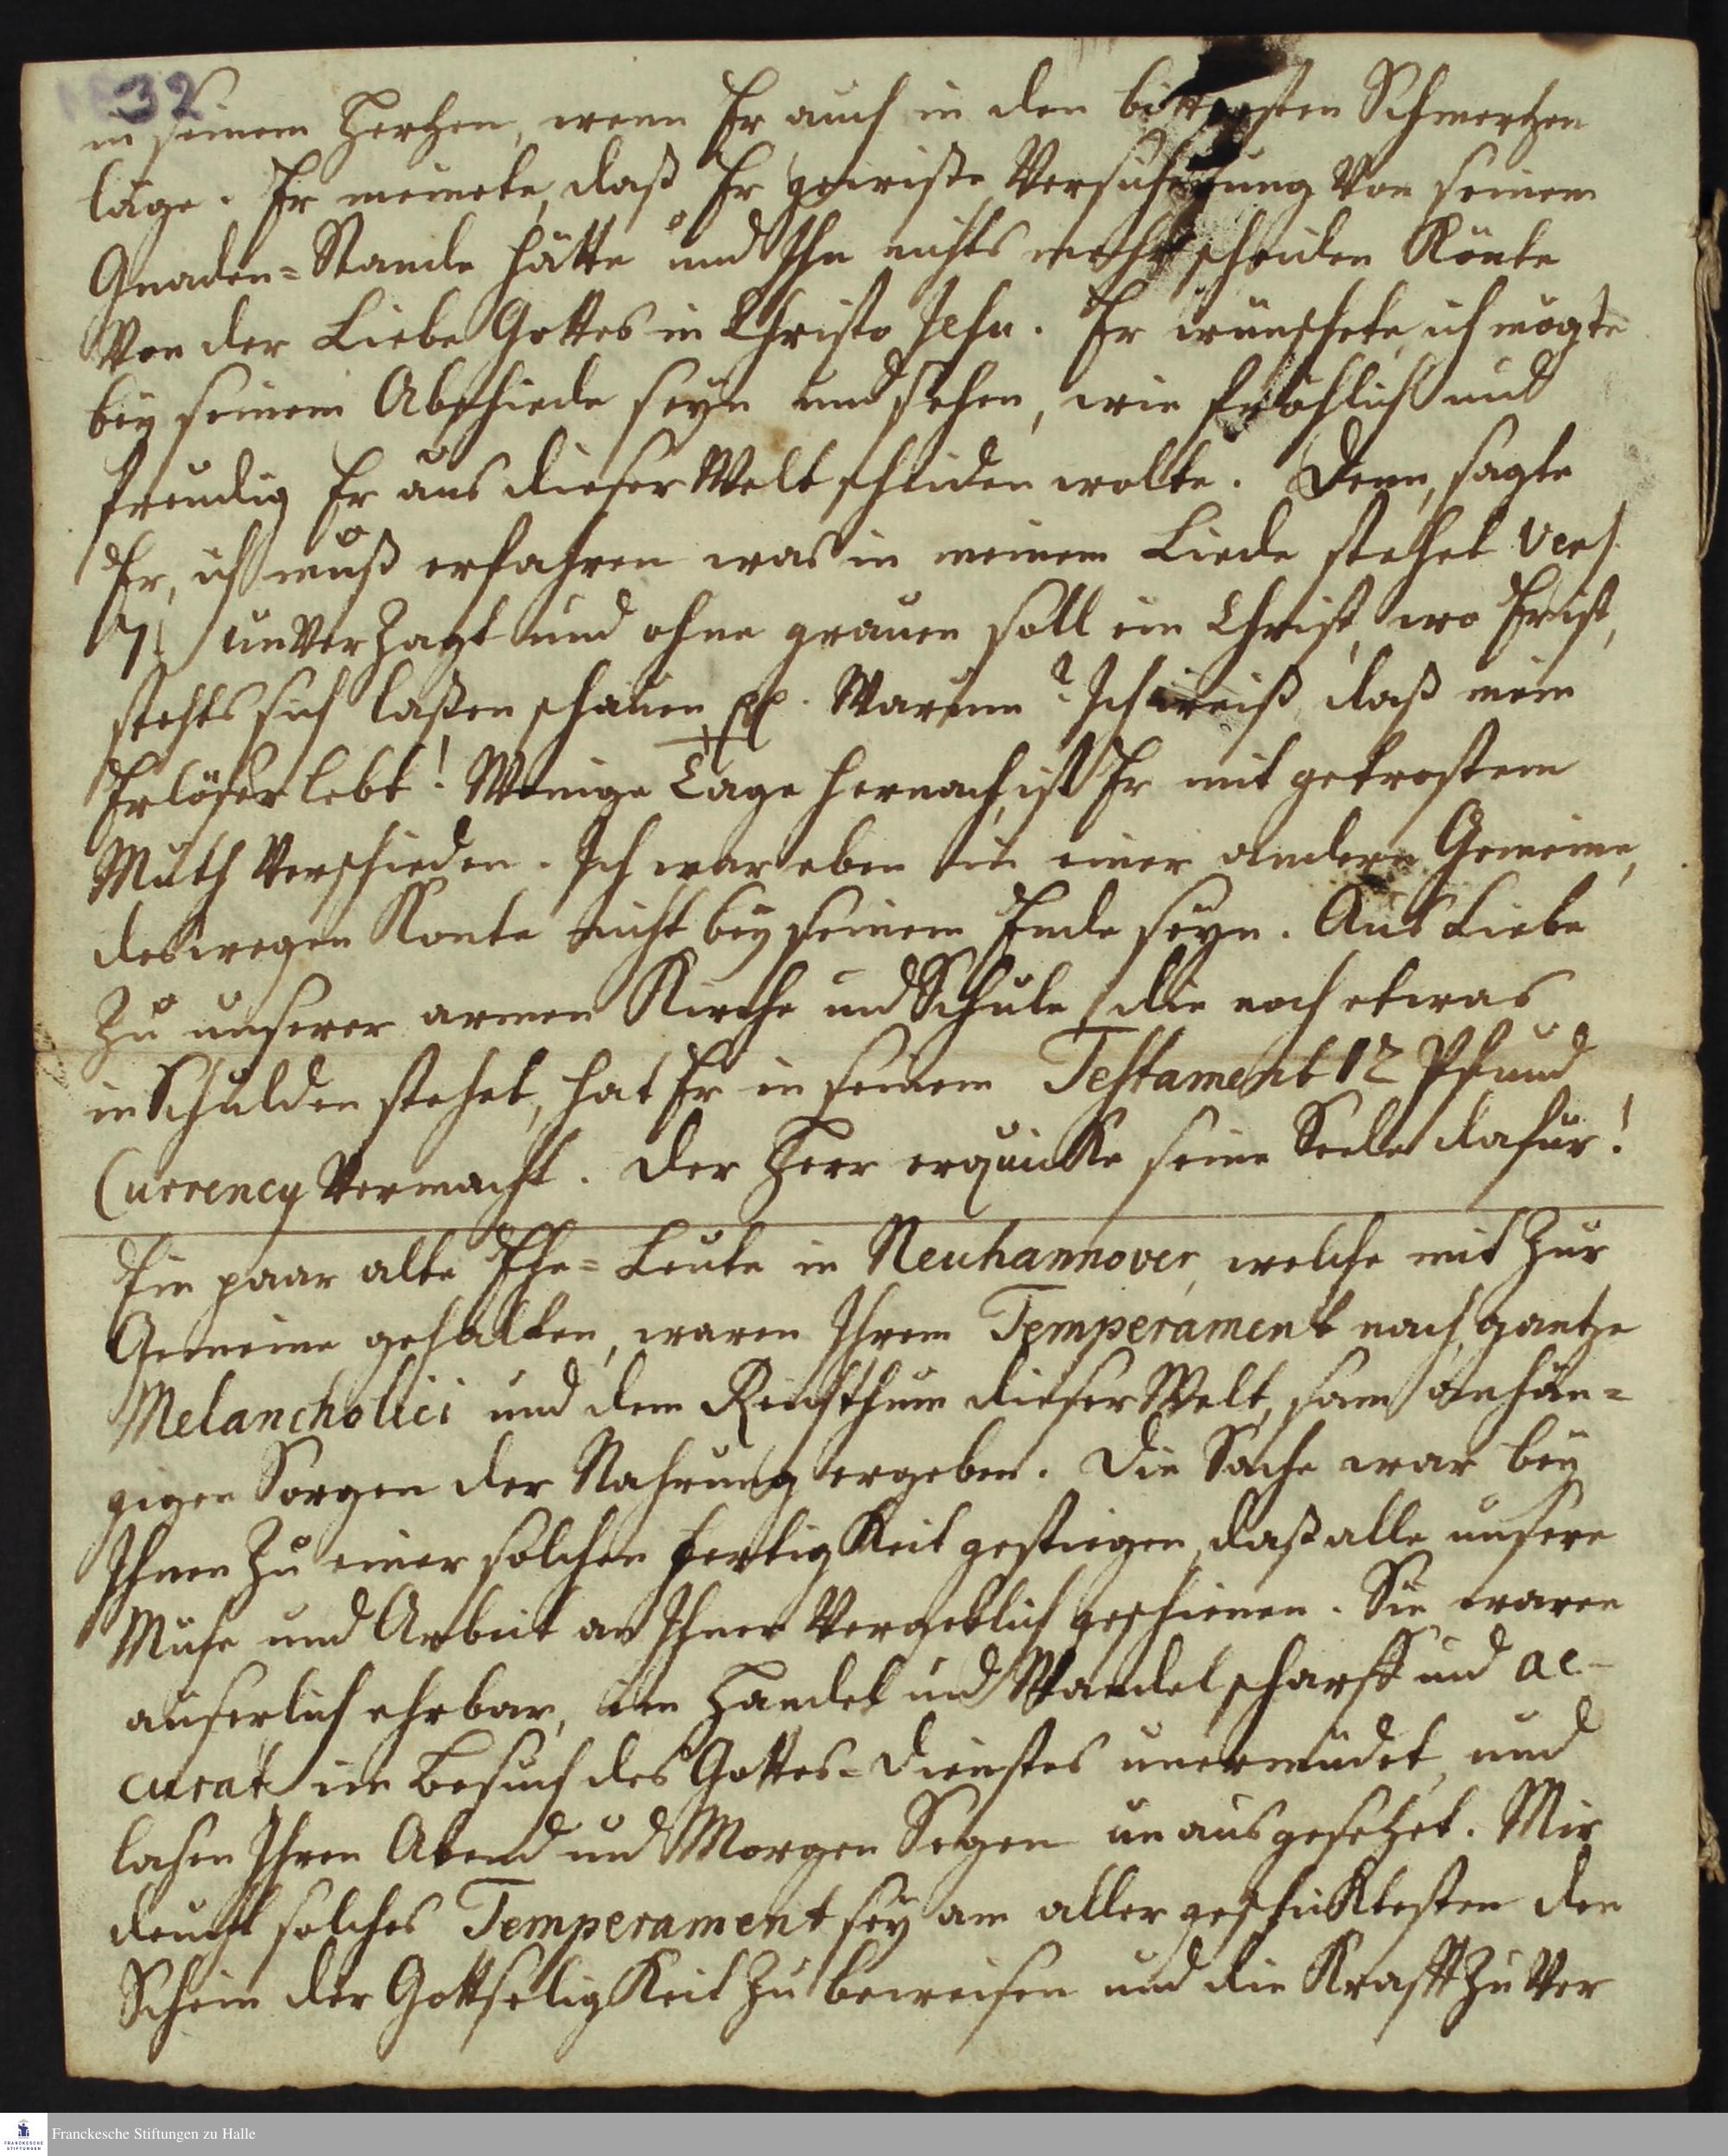 32
in seinem Hertzen, wenn Er auch in den bittersten Schmertzen
läge. Er meinete, daß Er gewiße Versicherung von seinem
Gnaden=Stande hätte und Ihn nichts mehr scheiden Könte
von der Liebe Gottes in Christo Jesu. Er wünschete, ich mögte
bey seinem Abschiede seyn und sehen, wie frölich und
freudig Er aus dieser Welt scheiden wolte. Denn, sagte
Er, ich muß erfahren was in meinem Liede stehet vers
7 unverzagt und ohne grauen soll ein Christ, wo Er ist,
stehts sich laßen schauen pp. Warum? Ich weiß, daß mein
Erlöser lebt! Wenige Tage hernach, ist Er mit getrostem
Muth verschieden. Ich war eben in einer andern Gemeine,
deswegen Konte nicht bey seinem Ende seyn. Aus Liebe
zu unserer armen Kirche und Schule, die noch etwas
in Schulden stehet, hat Er in seinem Testament 12 Pfund
Currency vermacht. Der Herr erquicke seine Seele dafür!
Ein paar alte Ehe=Leute in Neuhannover, welche mit zur
Gemeine gehalten, waren Ihrem Temperament nach, gantze
Melancholici und dem Reichthum dieser Welt, sam anhän=
gigen Sorgen der Nahrung ergeben. Die Sache war bey
Ihnen zu einer solchen fertigKeit gestiegen, daß alle unsere
Mühe und Arbeit an Ihnen vergeblich geschienen. Sie waren
äuserlich ehrbar, im Handel und Wandel scharff und ac-
curat, im Besuch des Gottes=Dienstes unermüdet, und
lasen Ihren Abend und Morgen Segen unausgesetzet. Mir
deucht solches Temperament sey am aller geschicktesten den
Schein der GottseligKeit zu beweisen und die Krafft zu ver
Franckesche Stiftungen zu Halle